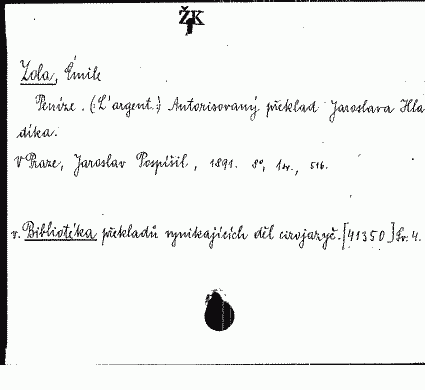 ŽK
Zola, Émile
Peníze. (: L'argent :) Autorisovaný překlad Jaroslava Hla-
díka.
V Praze, Jaroslav Pospíšil, 1891. 8°, 1 sv., 516.
v. Bibliotéka překladů vynikajících děl cizojazyč. [41350] Sv. 4.